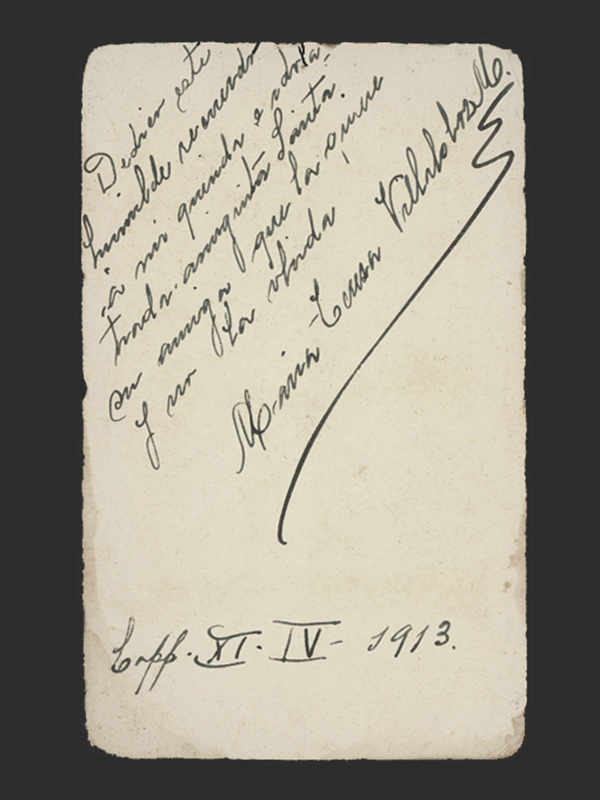 Dedico este
humilde recuerdo
á mi querida e idola-
trada amiguita Santa.
su amiga que la quiere
y no la olvida
Maria Teresa Villalobos M.
XI. IV - 1913.